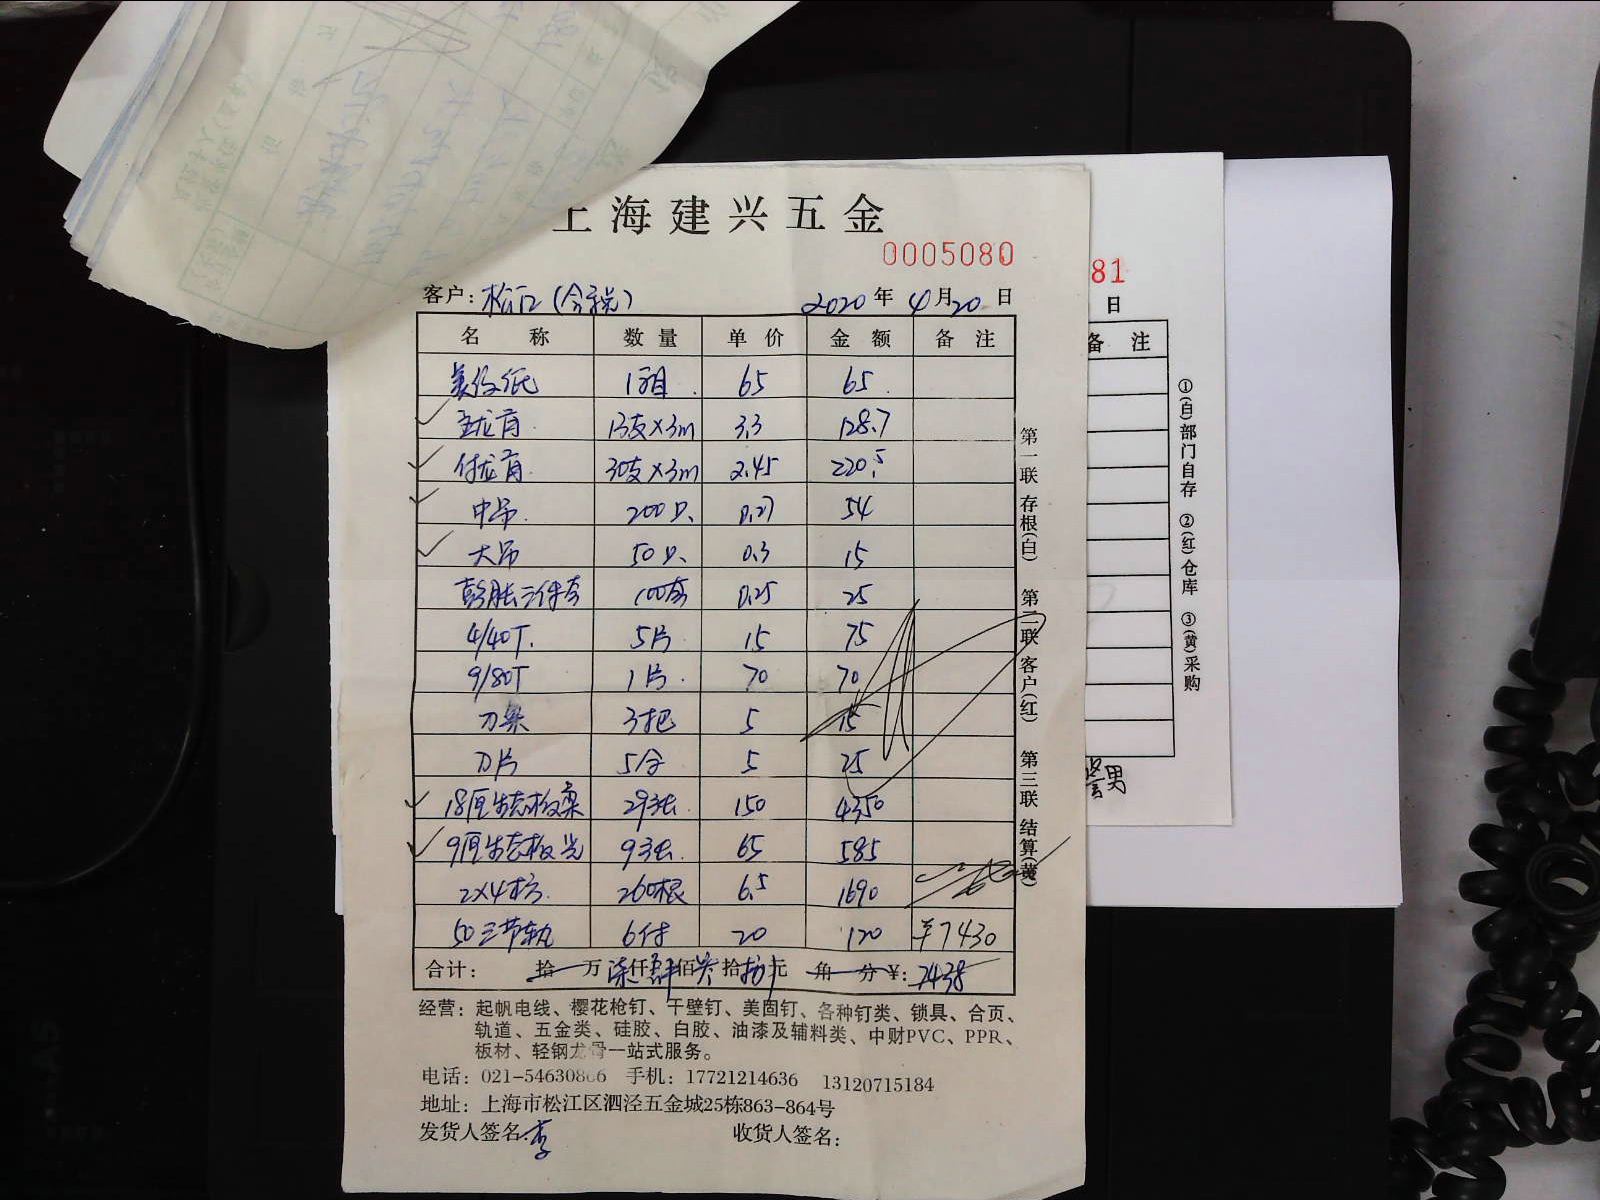 上海建兴五金
0005080
81
客户: 松江(含税) 2020 年 4 月 20 日
日
名 称 数 量 单 价 金 额 备 注
备 注
美纹纸 1箱 65 65
主龙骨 13支×3m 3.3 128.7
付龙骨 30支×3m 2.45 220.5
中吊 200只 0.27 54
大吊 50只 0.3 15
膨胀三件套 100套 0.25 25
4/40T 5片 15 75
9/80T 1片 70 70
刀架 3把 5 15
刀片 5盒 5 25
18厘生态板 29张 150 4350
9厘生态板 9张 65 585
2×4木方 260根 6.5 1690
50三节轨 6付 20 120 ¥7430
合计: 拾 万 柒仟肆佰 拾 元 角 分 ¥: 7438
第一联 存根(白) 第二联 客户(红) 第三联 结算(黄)
①(白)部门自存 ②(红)仓库 ③(黄)采购
经营: 起帆电线、樱花枪钉、干壁钉、美固钉、各种钉类、锁具、合页、
轨道、五金类、硅胶、白胶、油漆及辅料类、中财PVC、PPR、
板材、轻钢龙骨一站式服务。
电话: 021-54630866 手机: 17721214636 13120715184
地址: 上海市松江区泗泾五金城25栋863-864号
发货人签名: 李 收货人签名: